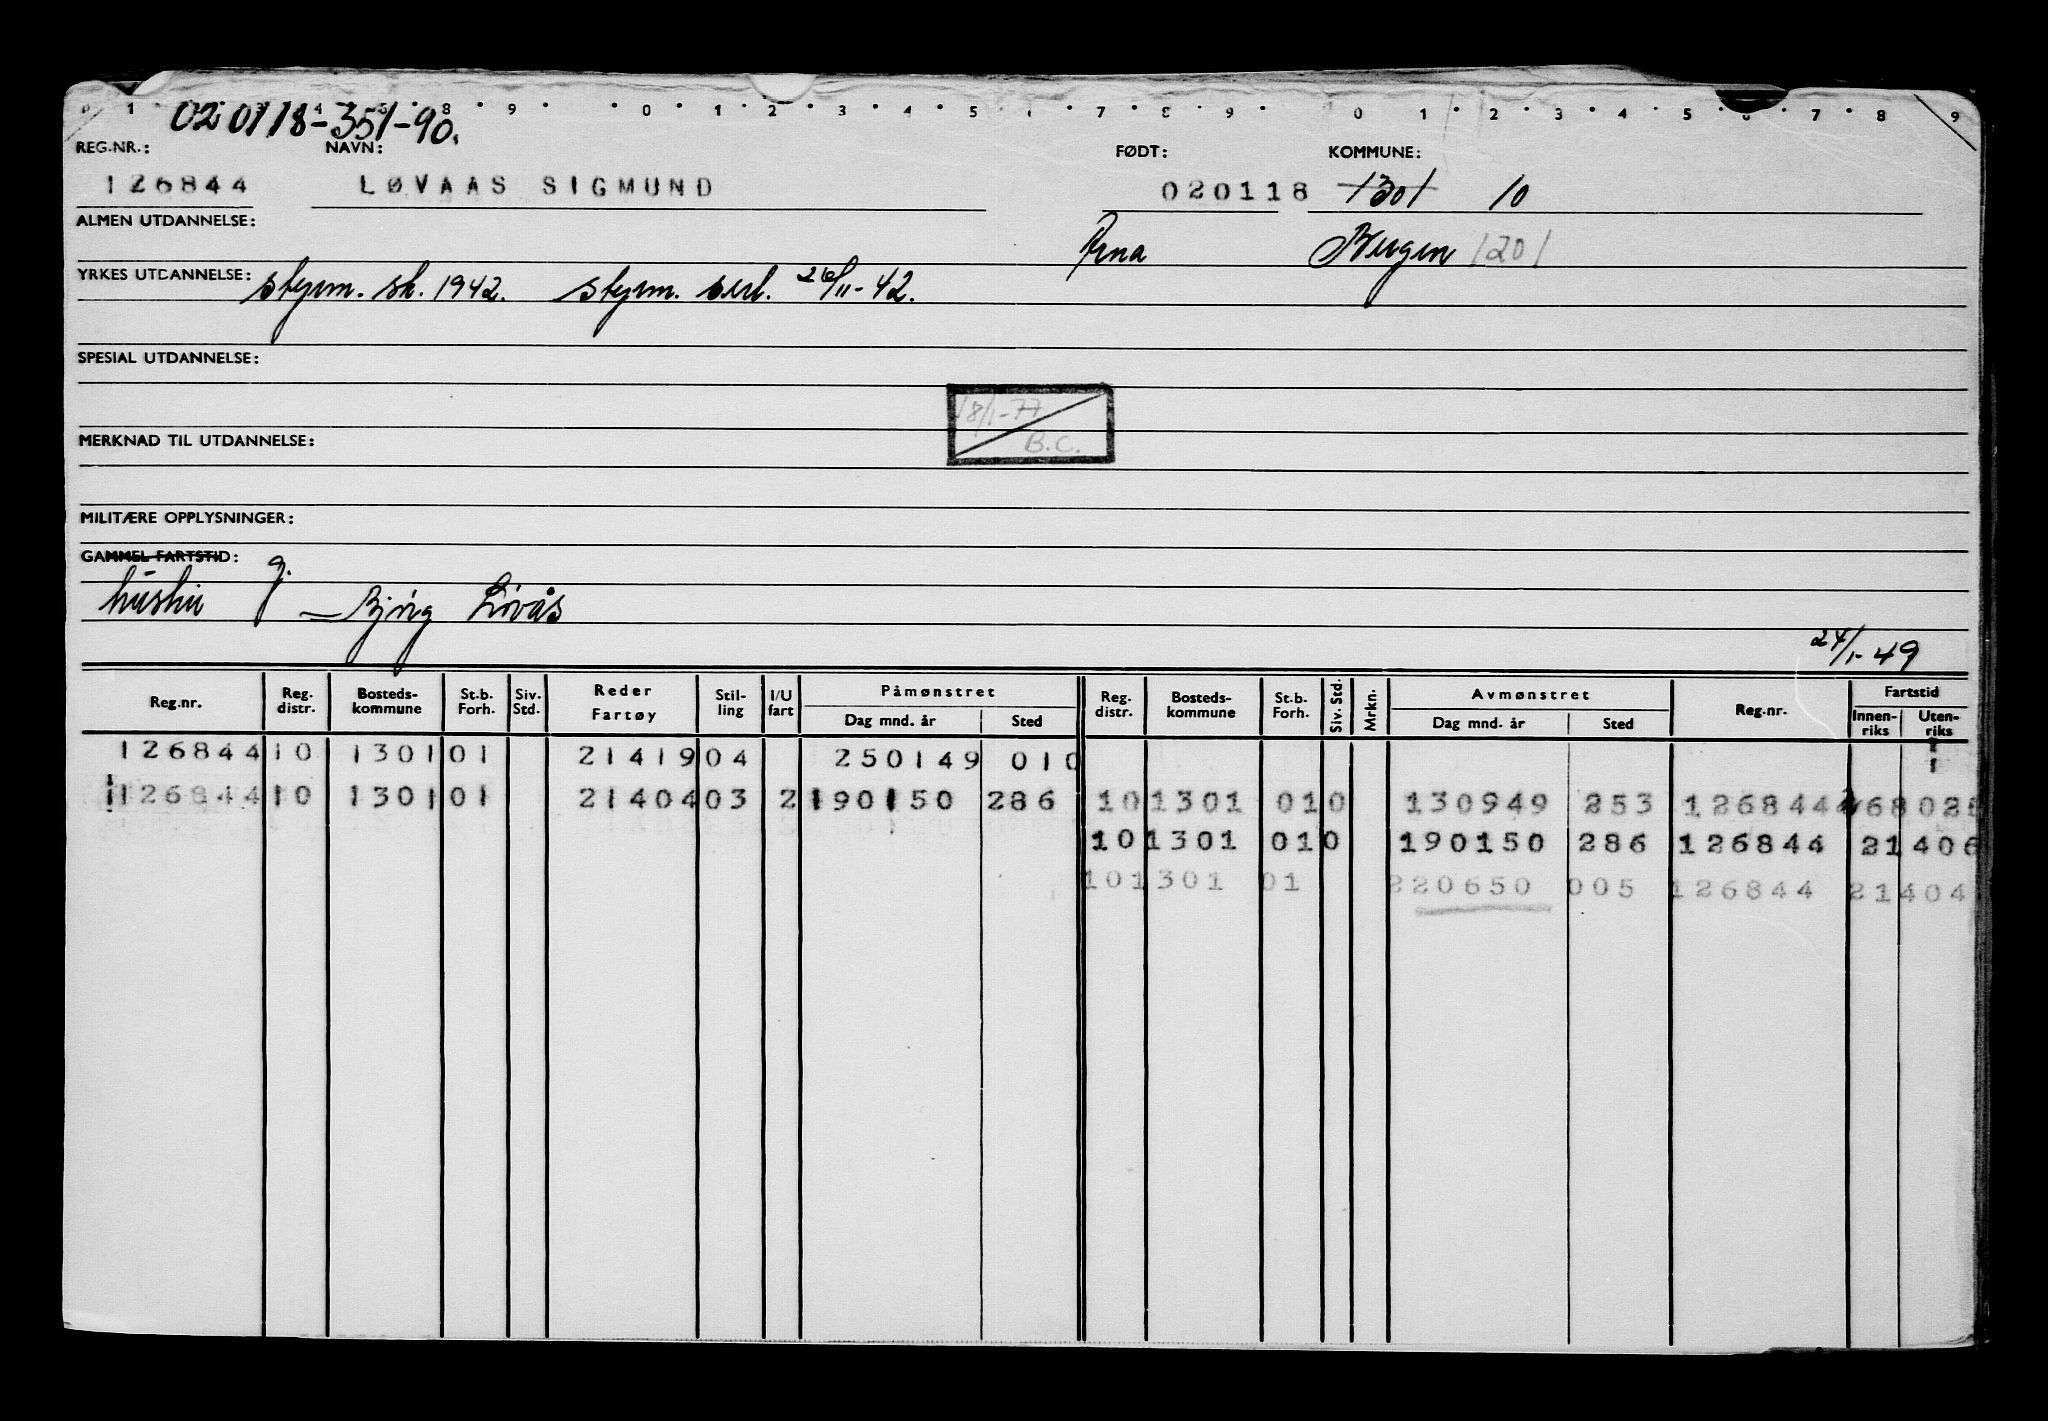 0 1 4 5 8 9 0 1 2 3 4 5 7 8 9 0 1 2 3 4 5 6 7 8 9
020118-351-90.
REG.NR.: NAVN: FØDT: KOMMUNE:
126844 LØVAAS SIGMUND 020118 1301 10
ALMEN UTDANNELSE: Arna Bergen 1201
YRKES UTDANNELSE: styrm. sk. 1942. styrm. sert. 26/11-42.
SPESIAL UTDANNELSE:
18/1-77
B.C.
MERKNAD TIL UTDANNELSE:
MILITÆRE OPPLYSNINGER:
GAMMEL FARTSTID: g.
hustru — Bjørg Løvås
24/1-49
Reg.nr. Reg. distr. Bosteds- kommune St.b. Forh. Siv. Std. Reder Fartøy Stil- ling I/U fart Påmønstret Dag mnd. år Sted Reg. distr. Bosteds- kommune St.b. Forh. Siv. Std. Mrkn. Avmønstret Dag mnd. år Sted Reg.nr. Fartstid Innen- riks Uten- riks
126844 10 1301 01 21419 04 250149 010
126844 10 1301 01 21404 03 2 190150 286 10 1301 01 0 130949 253 126844
10 1301 01 0 190150 286 126844 21406
10 1301 01 220650 005 126844 21404